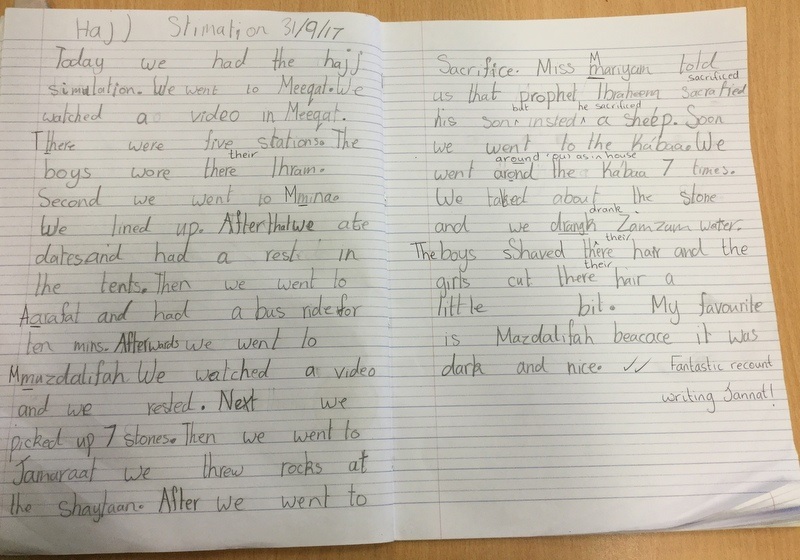 Hajj Stimation 31/9/17
Today we had the hajj
simulation. We went to Meeqat. We
watched a video in Meeqat.
There were five stations. The
their
boys wore there Ihram.
Second we went to Mmina.
We lined up. After that we ate
dates and had a rest in
the tents. Then we went to
Aarafat and had a bus ride for
ten mins. Afterwards we went to
Mmuzdalifah. We watched a video
and we rested. Next we
picked up 7 stones. Then we went to
Jamaraat we threw rocks at
the shaytaan. After we went to
Sacrifice. Miss Mariyam told
sacrificed
us that prophet Ibraheem Sacrafied
but he sacrificed
his son insted a sheep. Soon
we went to the Kábaa. We
around 'ou' as in house
went arond the Kábaa 7 times.
We talked about the stone
drank
and we drangk Zamzam water.
their
The boys Sshaved there hair and the
their
girls cut there hair a
little bit. My favourite
is Mazdalifah beacace it was
dark and nice. ✓✓ Fantastic recount
writing Jannat!